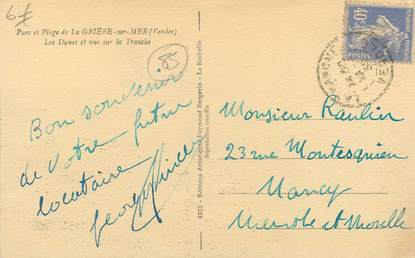 6€
Parc et Plage de La GRIÈRE-sur-MER (Vendée)
Les Dunes et vue sur la Tranche
85
Bon souvenir
de votre futur
locataire
4273 - Editions Artistiques Raymond Bergevin - La Rochelle
Reproduction interdite
40c
Monsieur Raulin
23 rue Montesquieu
Nancy
Meurthe et Moselle